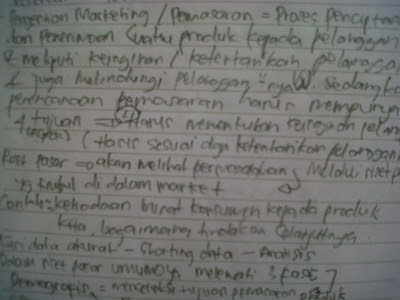 Pengertian Marketing / Pemasaran = Proses pencipta
dan Penerimaan suatu produk kepada pelanggan
& meliputi keinginan / ketertarikan pelangga
& juga melindungi pelanggan "nya". Sedangka
perencanaan pemasaran harus mempunya
4 tujuan ⇒ Harus menentukan keinginan pelan
(Harus sesuai dgn ketentarikan pelanggan
Riset pasar ⇒ akan melihat permasalahan melalui riset p
yg timbul di dalam market
Contoh: keadaan minat konsumen kepada produk
kita, bagaimana tindakan selanjutnya.
Cari data akurat - Shorting data - Analisis
Dalam riset pasar umumnya melewati 3 fase
Demografis = mencakup tujuan pemasaran produk